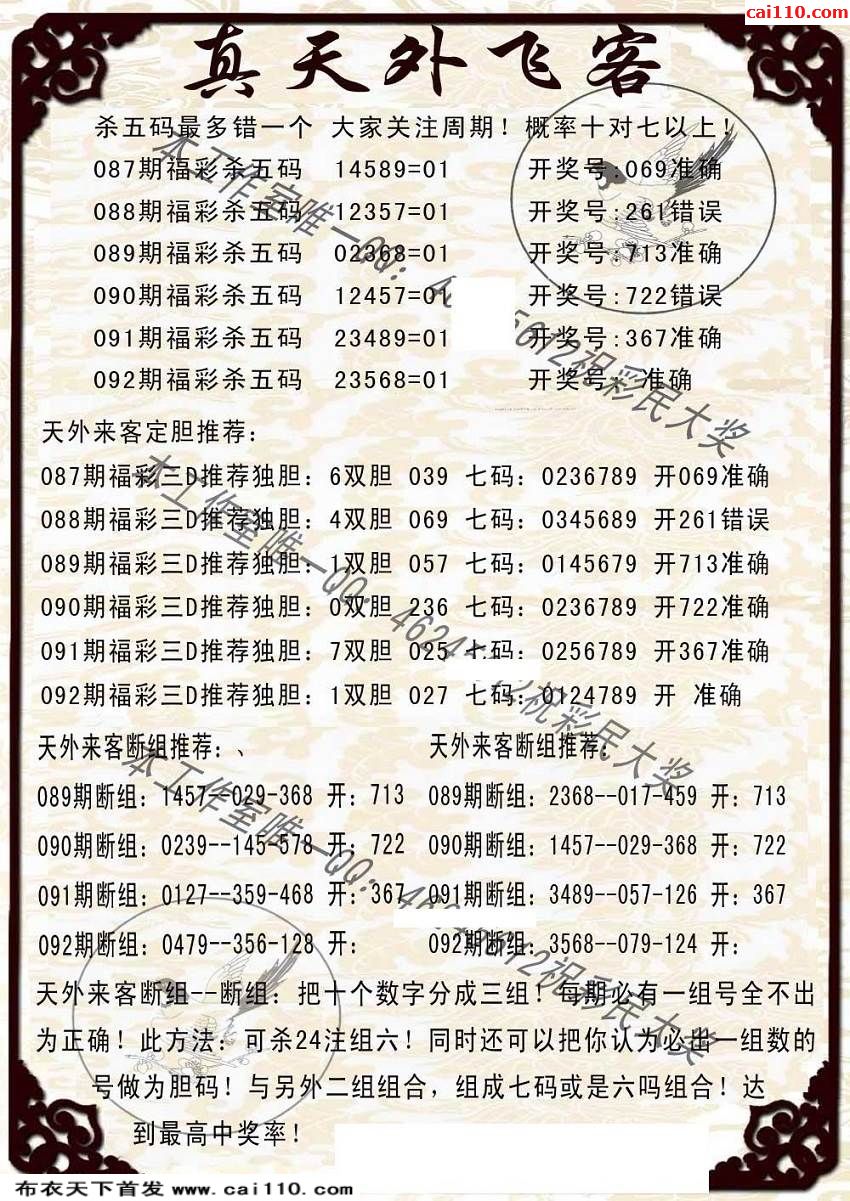 cai110.com
真天外飞客
杀五码最多错一个 大家关注周期！概率十对七以上！
087期福彩杀五码 14589=01 开奖号:069准确
088期福彩杀五码 12357=01 开奖号:261错误
089期福彩杀五码 02368=01 开奖号:713准确
090期福彩杀五码 12457=01 开奖号:722错误
091期福彩杀五码 23489=01 开奖号:367准确
092期福彩杀五码 23568=01 开奖号: 准确
天外来客定胆推荐：
087期福彩三D推荐独胆：6双胆 039 七码：0236789 开069准确
088期福彩三D推荐独胆：4双胆 069 七码：0345689 开261错误
089期福彩三D推荐独胆：1双胆 057 七码：0145679 开713准确
090期福彩三D推荐独胆：0双胆 236 七码：0236789 开722准确
091期福彩三D推荐独胆：7双胆 025 七码：0256789 开367准确
092期福彩三D推荐独胆：1双胆 027 七码：0124789 开 准确
天外来客断组推荐：、 天外来客断组推荐：
089期断组：1457--029-368 开：713 089期断组：2368--017-459 开：713
090期断组：0239--145-578 开：722 090期断组：1457--029-368 开：722
091期断组：0127--359-468 开：367 091期断组：3489--057-126 开：367
092期断组：0479--356-128 开： 092期断组：3568--079-124 开：
天外来客断组--断组：把十个数字分成三组！每期必有一组号全不出
为正确！此方法：可杀24注组六！同时还可以把你认为必出一组数的
号做为胆码！与另外二组组合，组成七码或是六吗组合！达
到最高中奖率！
本工作室唯一QQ：
祝彩民大奖
本工作室唯一QQ：
祝彩民大奖
本工作室唯一QQ：
祝彩民大奖
布衣天下首发 www.cai110.com